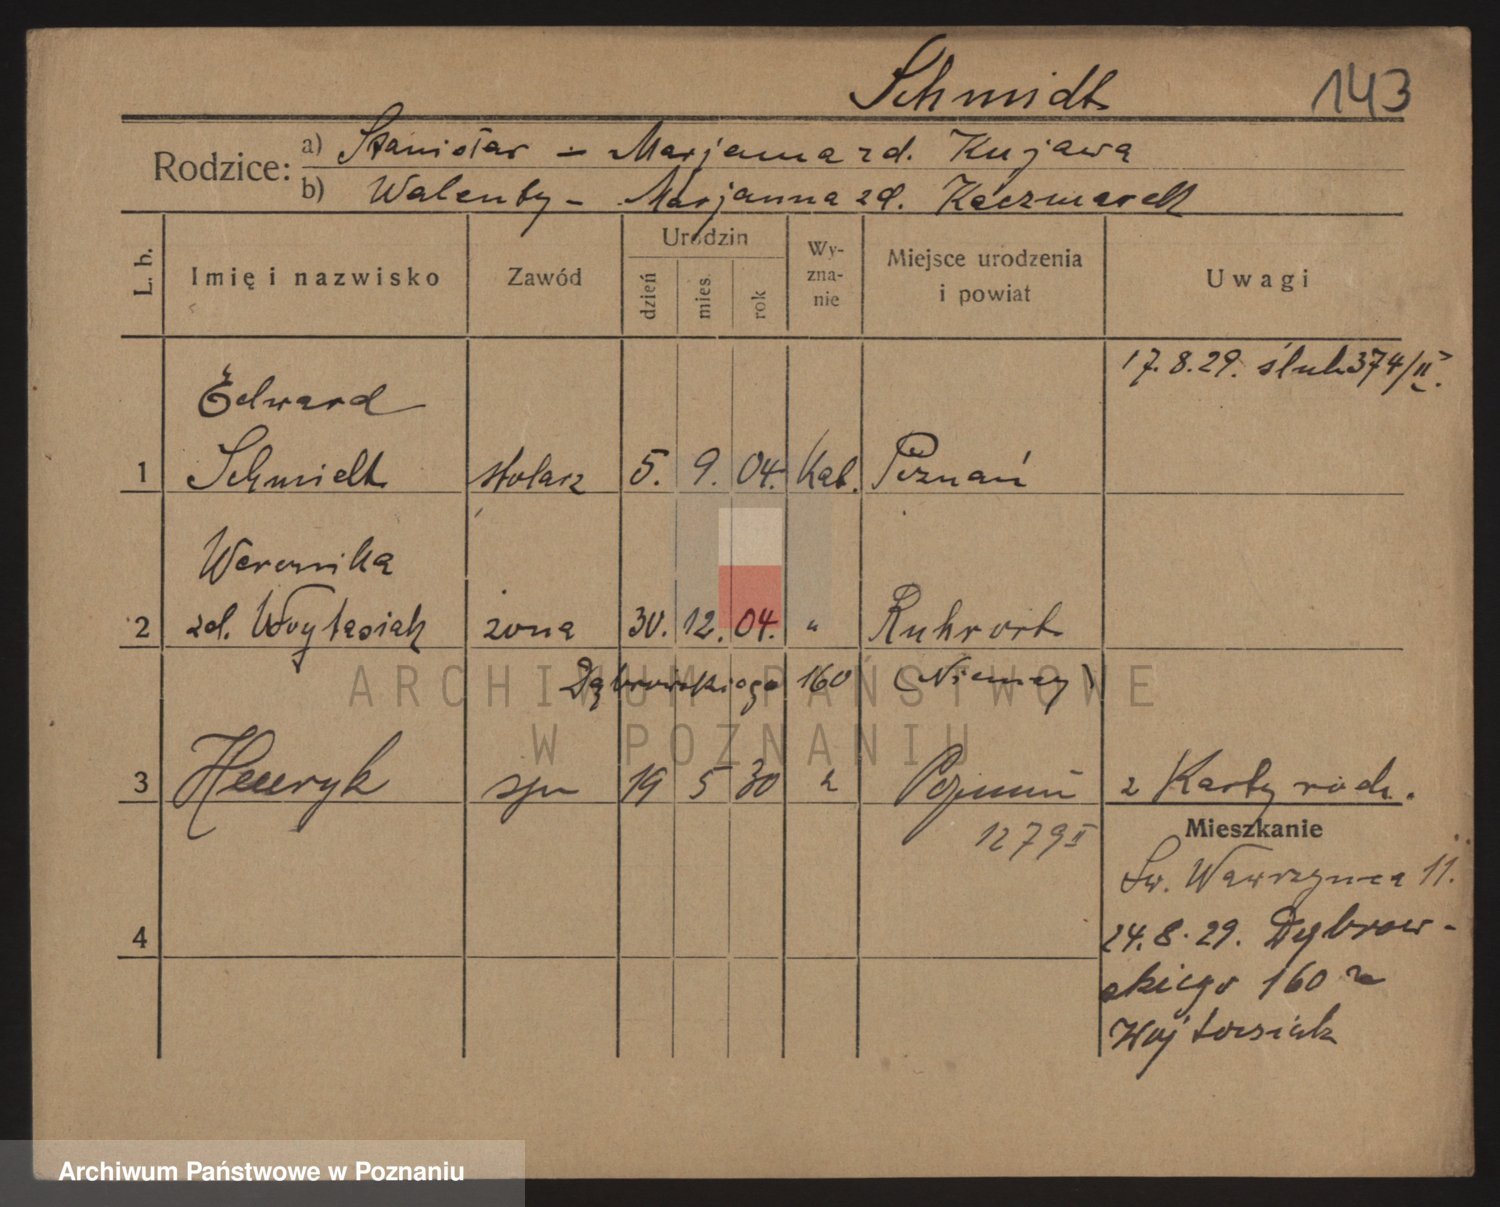 Schmidt 143
Rodzice: a) Stanisław - Marjanna zd. Kujawa
b) Walenty - Marjanna zd. Kaczmarek
L. b. Imię i nazwisko Zawód Urodzin dzień mies. rok Wy-zna-nie Miejsce urodzenia i powiat Uwagi
17.8.29. ślub 374/II.
Edward
1 Schmidt stolarz 5. 9. 04. Kat. Poznań
Weronika
2 zd. Woytasiak żona 30. 12. 04. " Ruhrort
Dąbrowskiego 160 (Niemcy)
3 Henryk syn 19 5 30 " Poznań z Karty rodz.
1279 II
Mieszkanie
Św. Wawrzyńca 11.
4
24.8.29. Dąbrow-
skiego 160 
Wojtasiak
ARCHIWUM PAŃSTWOWE
W POZNANIU
Archiwum Państwowe w Poznaniu